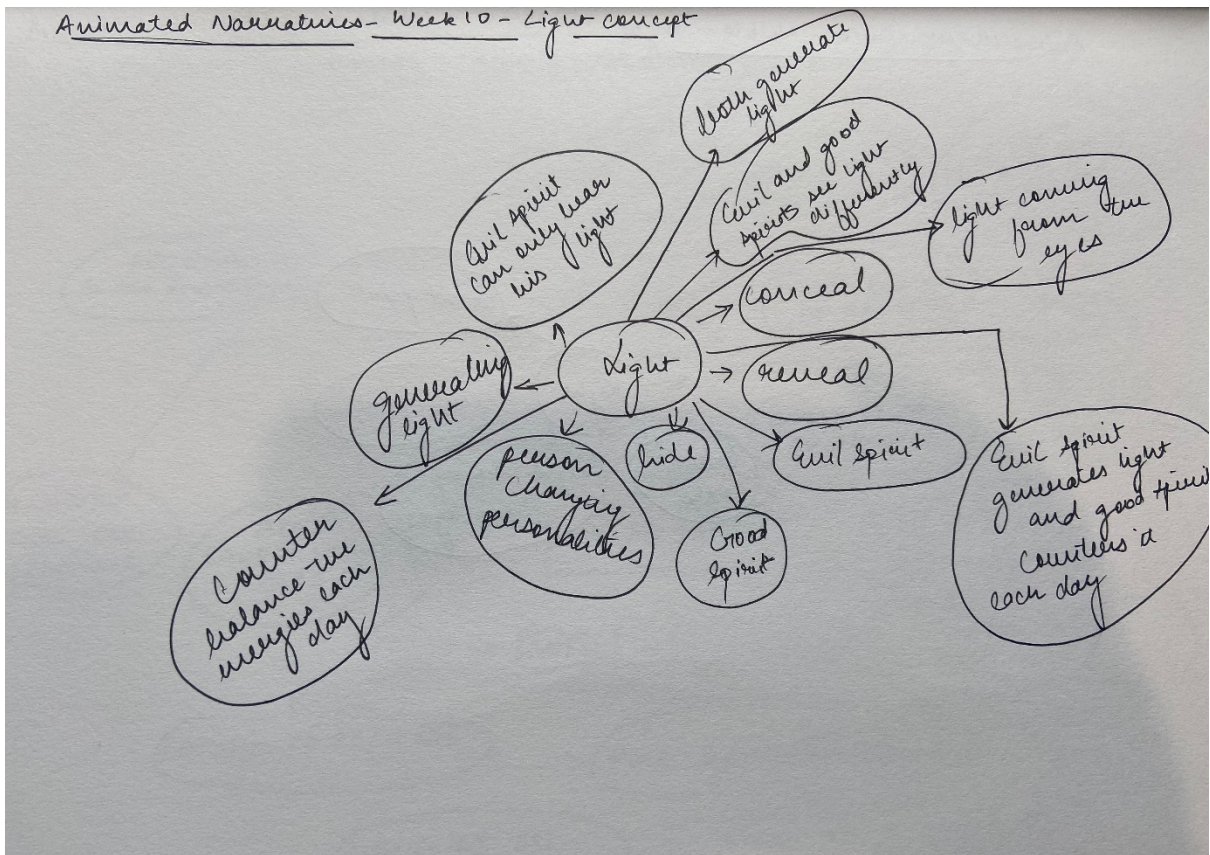 Animated Narratives - Week 10 - Light concept
both generate
light
Evil and good
spirits see light
differently
light coming
from the
eyes
Evil spirit
can only bear
his light
conceal
Light
reveal
generating
light
person
changing
personalities
hide
Evil spirit
Good
spirit
Evil spirit
generates light
and good spirit
counters it
each day
Counter
balance the
energies each
day